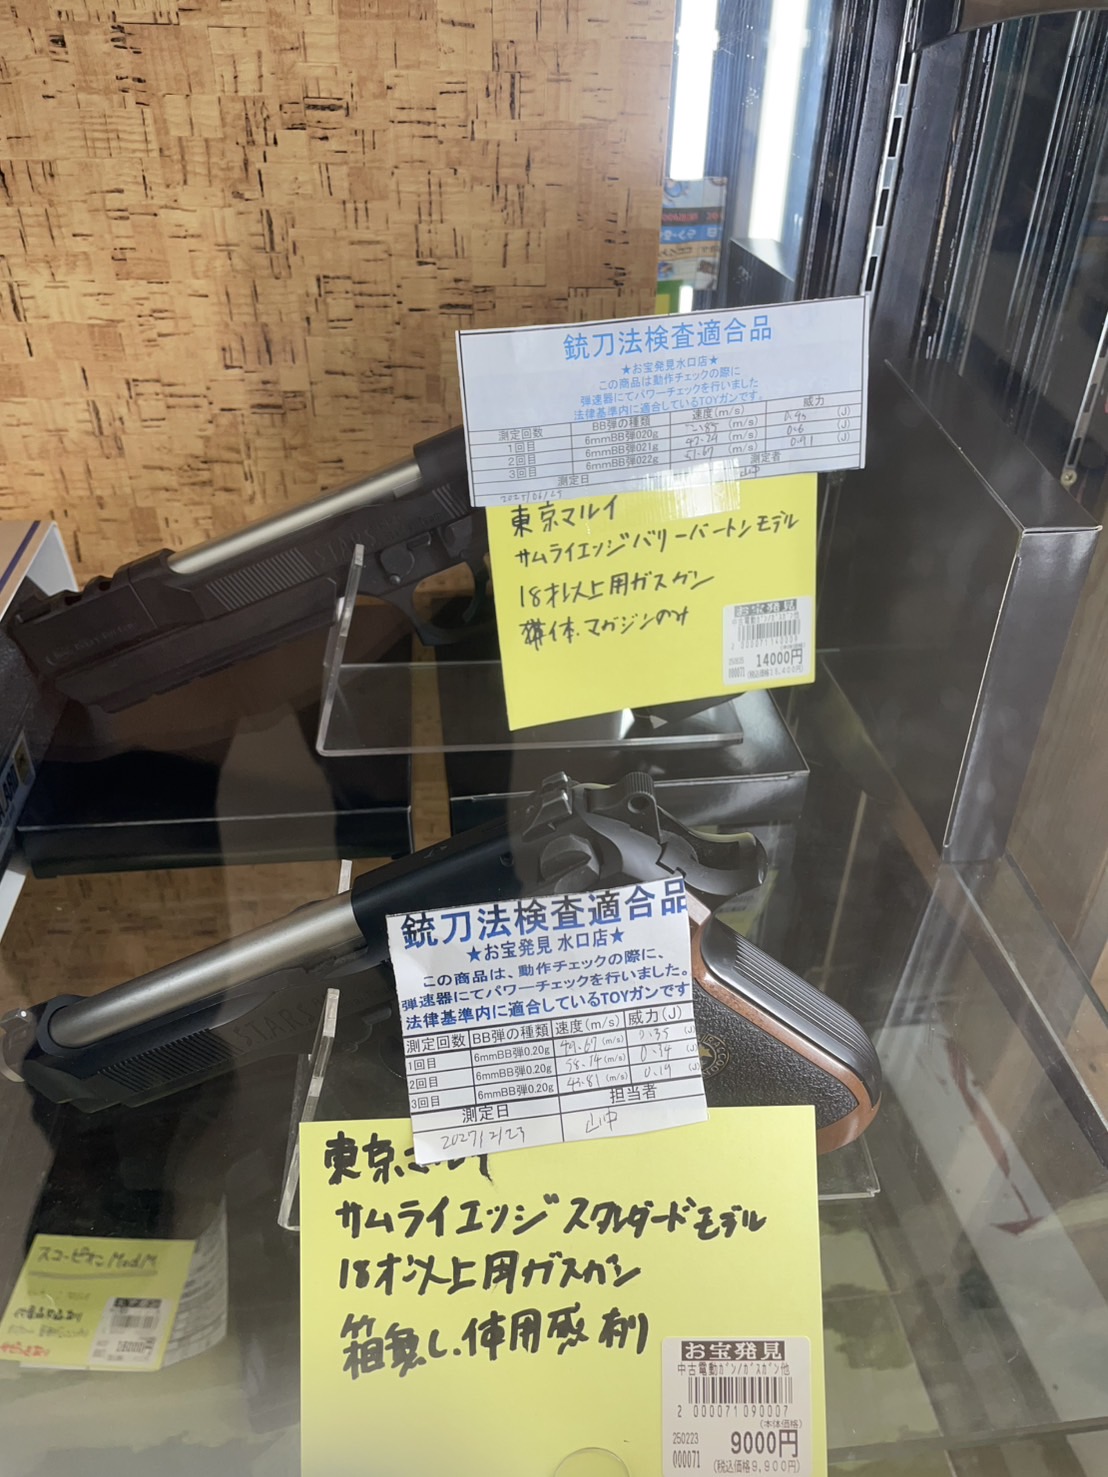 銃刀法検査適合品
★お宝発見水口店★
この商品は動作チェックの際に
弾速器にてパワーチェックを行いました
法律基準内に適合しているTOYガンです。
測定回数 BB弾の種類 速度(m/s) 威力
1回目 6mmBB弾020g (m/s) (J)
2回目 6mmBB弾021g (m/s) 0.6 (J)
3回目 6mmBB弾022g (m/s) (J)
測定日 測定者
山中
東京マルイ
サムライエッジバリーバートンモデル
18才以上用ガスガン
本体.マガジンのみ
お宝発見
14000円
000071
S.T.A.R.S
銃刀法検査適合品
★お宝発見 水口店★
この商品は、動作チェックの際に、
弾速器にてパワーチェックを行いました。
法律基準内に適合しているTOYガンです
測定回数 BB弾の種類 速度(m/s) 威力(J)
1回目 6mmBB弾0.20g (m/s) (J)
2回目 6mmBB弾0.20g (m/s) (J)
3回目 6mmBB弾0.20g 43.81 (m/s) 0.19 (J)
測定日 担当者
山中
東京マルイ
サムライエッジスタンダードモデル
18才以上用ガスガン
箱無し.使用感有り
お宝発見
中古電動ガン/ガスガン他
2 000071 090007
(本体価格)
250223
000071
9000円
(税込価格9,900円)
スコーピオン ModM
18000円